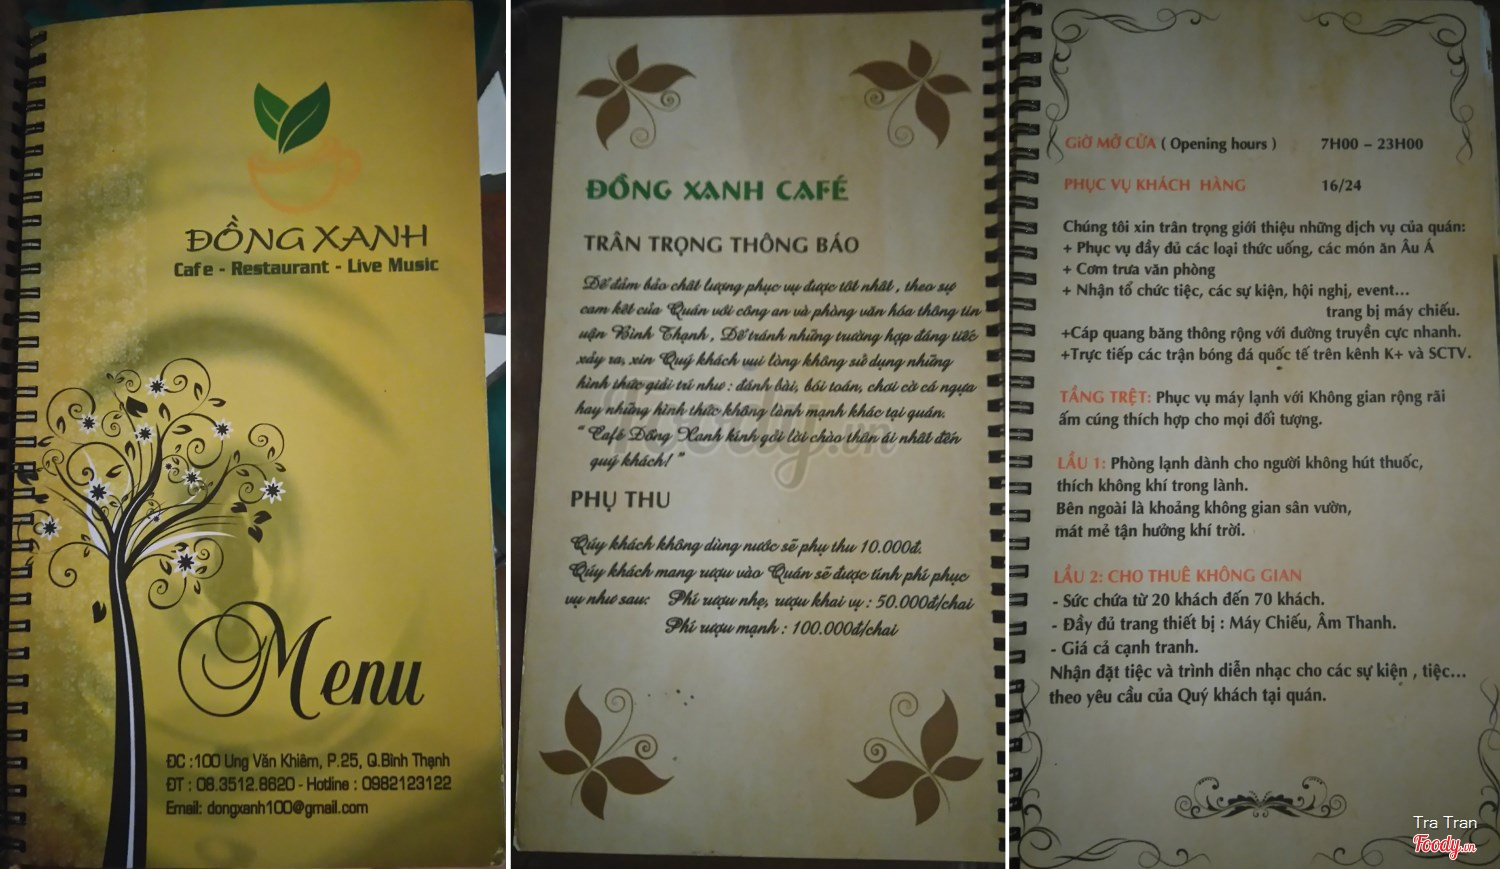 ĐỒNG XANH
Cafe - Restaurant - Live Music
Menu
ĐC :100 Ung Văn Khiêm, P.25, Q.Bình Thạnh
ĐT : 08.3512.8620 - Hotline : 0982123122
Email: dongxanh100@gmail.com
ĐỒNG XANH CAFÉ
TRÂN TRỌNG THÔNG BÁO
Để đảm bảo chất lượng phục vụ được tốt nhất , theo sự
cam kết của Quán với công an và phòng văn hóa thông tin
uận Bình Thạnh , Để tránh những trường hợp đáng tiếc
xảy ra, xin Quý khách vui lòng không sử dụng những
hình thức giải trí như : đánh bài, bói toán, chơi cờ cá ngựa
hay những hình thức không lành mạnh khác tại quán.
" Café Đồng Xanh kính gởi lời chào thân ái nhất đến
quý khách! "
PHỤ THU
Qúy khách không dùng nước sẽ phụ thu 10.000đ.
Qúy khách mang rượu vào Quán sẽ được tính phí phục
vụ như sau: Phí rượu nhẹ, rượu khai vị : 50.000đ/chai
Phí rượu mạnh : 100.000đ/chai
Foody.vn
GIỜ MỞ CỬA ( Opening hours ) 7H00 – 23H00
PHỤC VỤ KHÁCH HÀNG 16/24
Chúng tôi xin trân trọng giới thiệu những dịch vụ của quán:
+ Phục vụ đầy đủ các loại thức uống, các món ăn Âu Á
+ Cơm trưa văn phòng
+ Nhận tổ chức tiệc, các sự kiện, hội nghị, event...
trang bị máy chiếu.
+Cáp quang băng thông rộng với đường truyền cực nhanh.
+Trực tiếp các trận bóng đá quốc tế trên kênh K+ và SCTV.
TẦNG TRỆT: Phục vụ máy lạnh với Không gian rộng rãi
ấm cúng thích hợp cho mọi đối tượng.
LẦU 1: Phòng lạnh dành cho người không hút thuốc,
thích không khí trong lành.
Bên ngoài là khoảng không gian sân vườn,
mát mẻ tận hưởng khí trời.
LẦU 2: CHO THUÊ KHÔNG GIAN
- Sức chứa từ 20 khách đến 70 khách.
- Đầy đủ trang thiết bị : Máy Chiếu, Âm Thanh.
- Giá cả cạnh tranh.
Nhận đặt tiệc và trình diễn nhạc cho các sự kiện , tiệc...
theo yêu cầu của Quý khách tại quán.
Tra Tran
Foody.vn